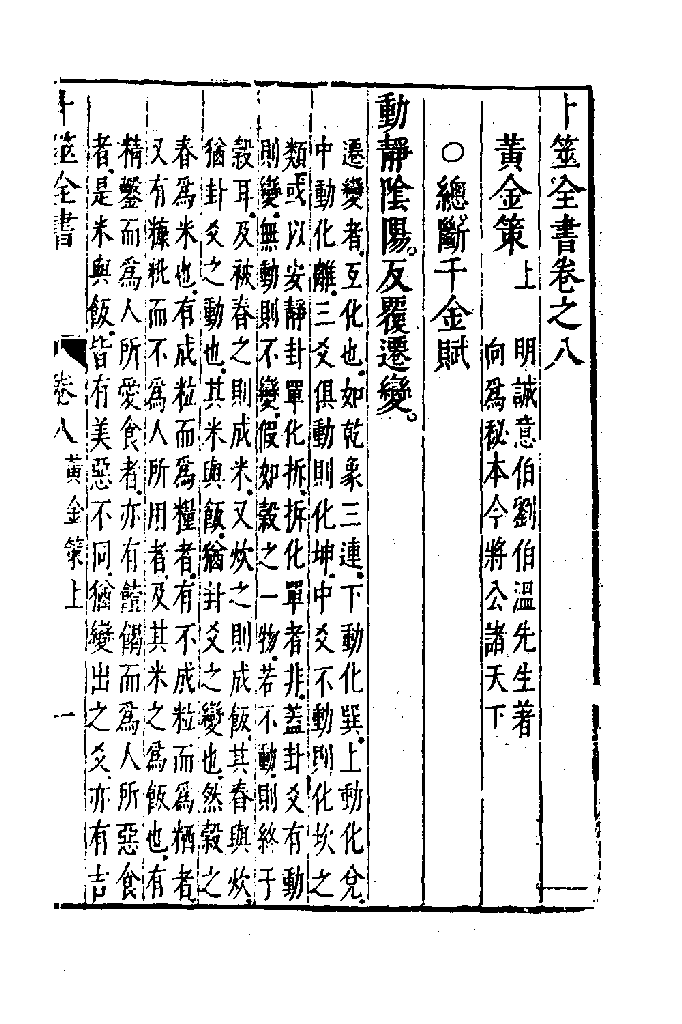 卜筮全書卷之八
黃金策上
明誠意伯劉伯溫先生著
向爲秘本今將公諸天下
○總斷千金賦
動靜陰陽。反覆遷變。
遷變者。互化也。如乾象三連。下動化巽。上動化兌。
中動化離。三爻俱動則化坤。中爻不動則化坎之
類。或以安靜卦單化拆。拆化單者非。蓋卦爻有動
則變。無動則不變。假如穀之一物。若不動。則終于
穀耳。及被舂之則成米。又炊之則成飯。其舂與炊。
猶卦爻之動也。其米與飯。猶卦爻之變也。然穀之
舂爲米也。有成粒而爲糧者。有不成粒而爲粞者。
又有糠粃而不爲人所用者。及其米之爲飯也。有
精鑿而爲人所愛食者。亦有饐餲而爲人所惡食
者。是米與飯。皆有美惡不同。猶變出之爻。亦有吉
卜筮全書
卷八
黃金策上
一